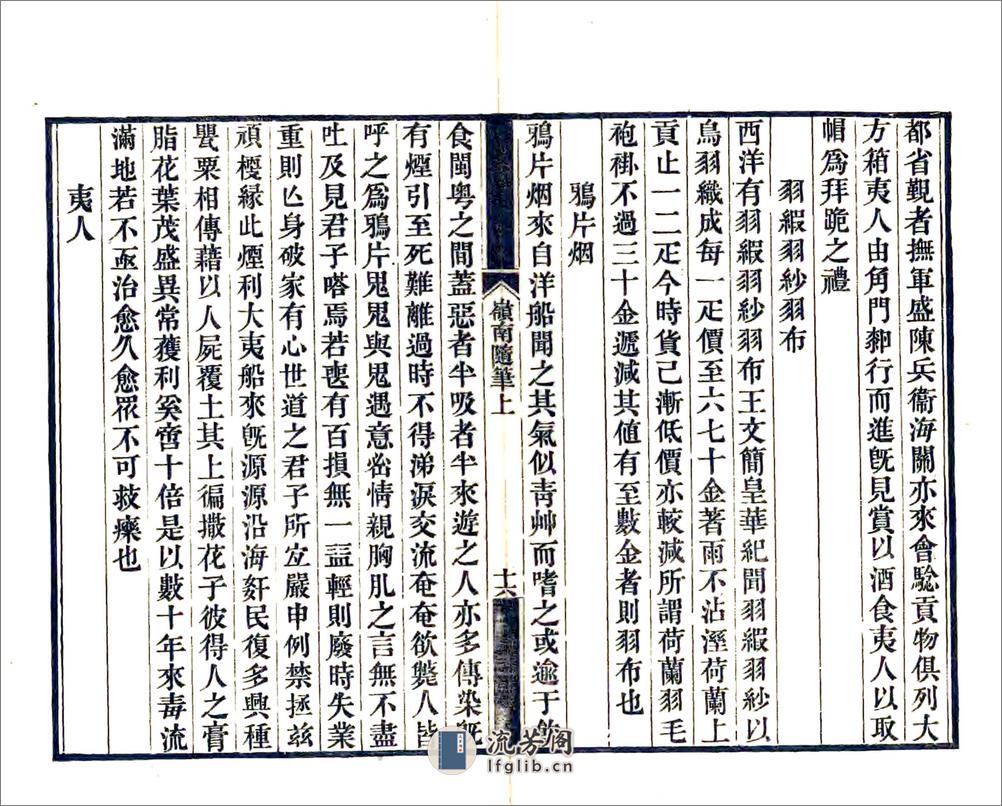 都省覲者撫軍盛陳兵衞海關亦來會驗貢物俱列大
方箱夷人由角門獅行而進旣見賞以酒食夷人以取
帽爲拜跪之禮
羽緞羽紗羽布
西洋有羽緞羽紗羽布王文簡皇華紀聞羽緞羽紗以
鳥羽織成每一疋價至六七十金著雨不沾溼荷蘭上
貢止一二疋今時貨己漸低價亦較減所謂荷蘭羽毛
袍褂不過三十金遞減其値有至數金者則羽布也
鴉片烟
鴉片烟來自洋船聞之其氣似靑艸而嗜之或逾于飮
嶺南隨筆上
十六
食閩粤之間蓋惡者半吸者半來遊之人亦多傳染旣
有煙引至死難離過時不得涕淚交流奄奄欲斃人皆
呼之爲鴉片鬼鬼與鬼遇意密情親胸肌之言無不盡
吐及見君子嗒焉若喪有百損無一益輕則廢時失業
重則亾身破家有心世道之君子所宜嚴申例禁拯兹
頑櫌緣此煙利大夷船來旣源源沿海奸民復多興種
甖粟相傳藉以人屍覆土其上徧撒花子彼得人之膏
脂花葉茂盛異常獲利奚啻十倍是以數十年來毒流
滿地若不亟治愈久愈眾不可救藥也
夷人
流芳阁
lfglib.cn